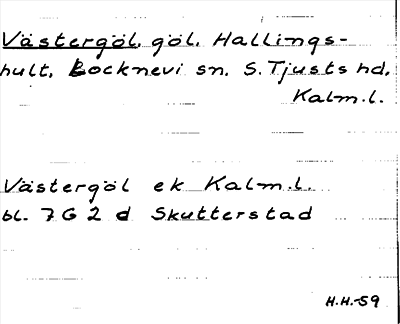 Västergöl, göl, Hallings-
hult, Locknevi sn. S. Tjusts hd,
Kalm.l.
Västergöl ek Kalm.l.
bl. 7G2d Skutterstad
H.H.-59